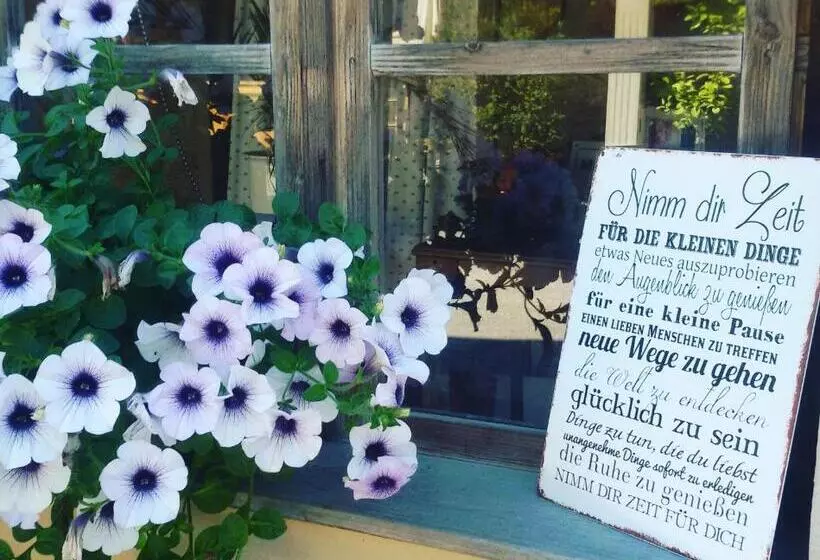 Nimm dir Zeit
FÜR DIE KLEINEN DINGE
etwas Neues auszuprobieren
den Augenblick zu genießen
für eine kleine Pause
EINEN LIEBEN MENSCHEN ZU TREFFEN
neue Wege zu gehen
die Welt zu entdecken
glücklich zu sein
Dinge zu tun, die du liebst
unangenehme Dinge sofort zu erledigen
die Ruhe zu genießen
NIMM DIR ZEIT FÜR DICH